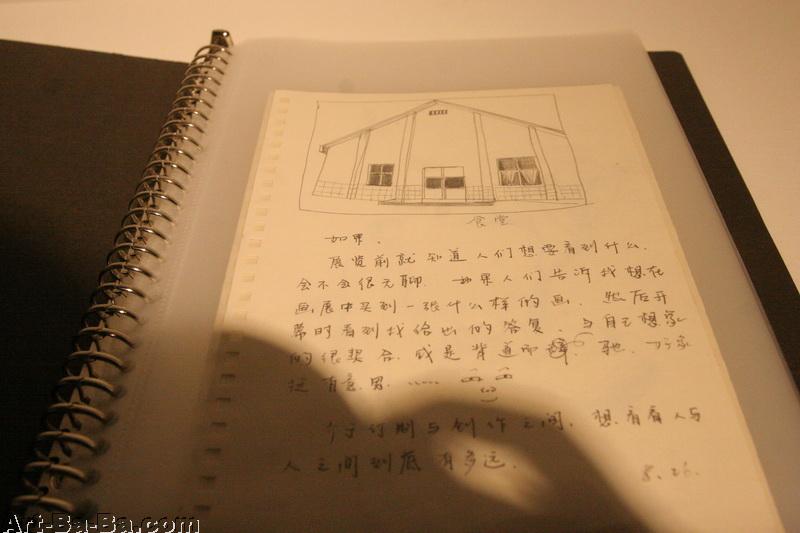 食堂
如果,
展览前就知道人们想要看到什么,
会不会很无聊. 如果人们告诉我想在
画展中买到一张什么样的画, 然后开
幕时看到我给出的答复, 与自己想象
的很契合, 或是背道而 驰,
有意思. ......
介于订制与创作之间, 想看看人与
人之间到底有多远.
8.26.
Art-Ba-Ba.com